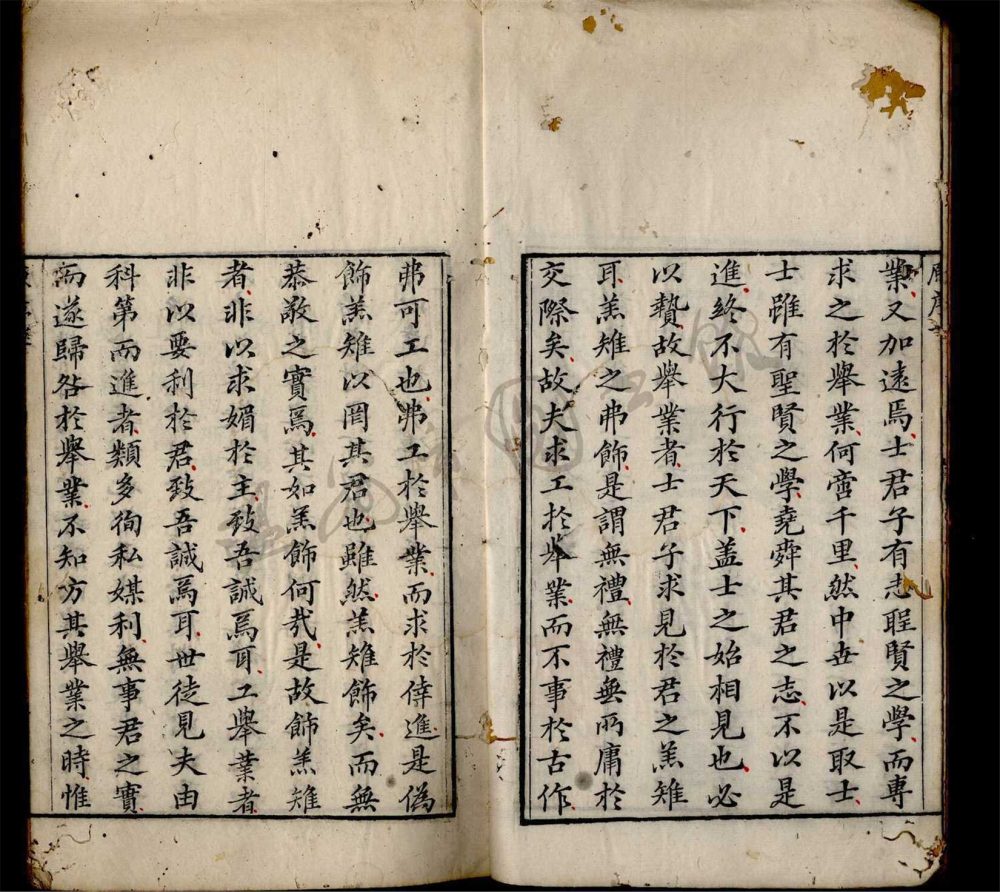 業又加遠焉士君子有志聖賢之學而專
求之於舉業何啻千里然中世以是取士
士雖有聖賢之學堯舜其君之志不以是
進終不大行於天下蓋士之始相見也必
以贄故舉業者士君子求見於君之羔雉
耳羔雉之弗飾是謂無禮無禮無所庸於
交際矣故夫求工於舉業而不事於古作
弗可工也弗工於舉業而求於倖進是偽
飾羔雉以罔其君也雖然羔雉飾矣而無
恭敬之實焉其如羔飾何哉是故飾羔雉
者非以求媚於主致吾誠焉耳工舉業者
非以要利於君致吾誠焉耳世徒見夫由
科第而進者類多徇私媒利無事君之實
而遂歸咎於舉業不知方其舉業之時惟